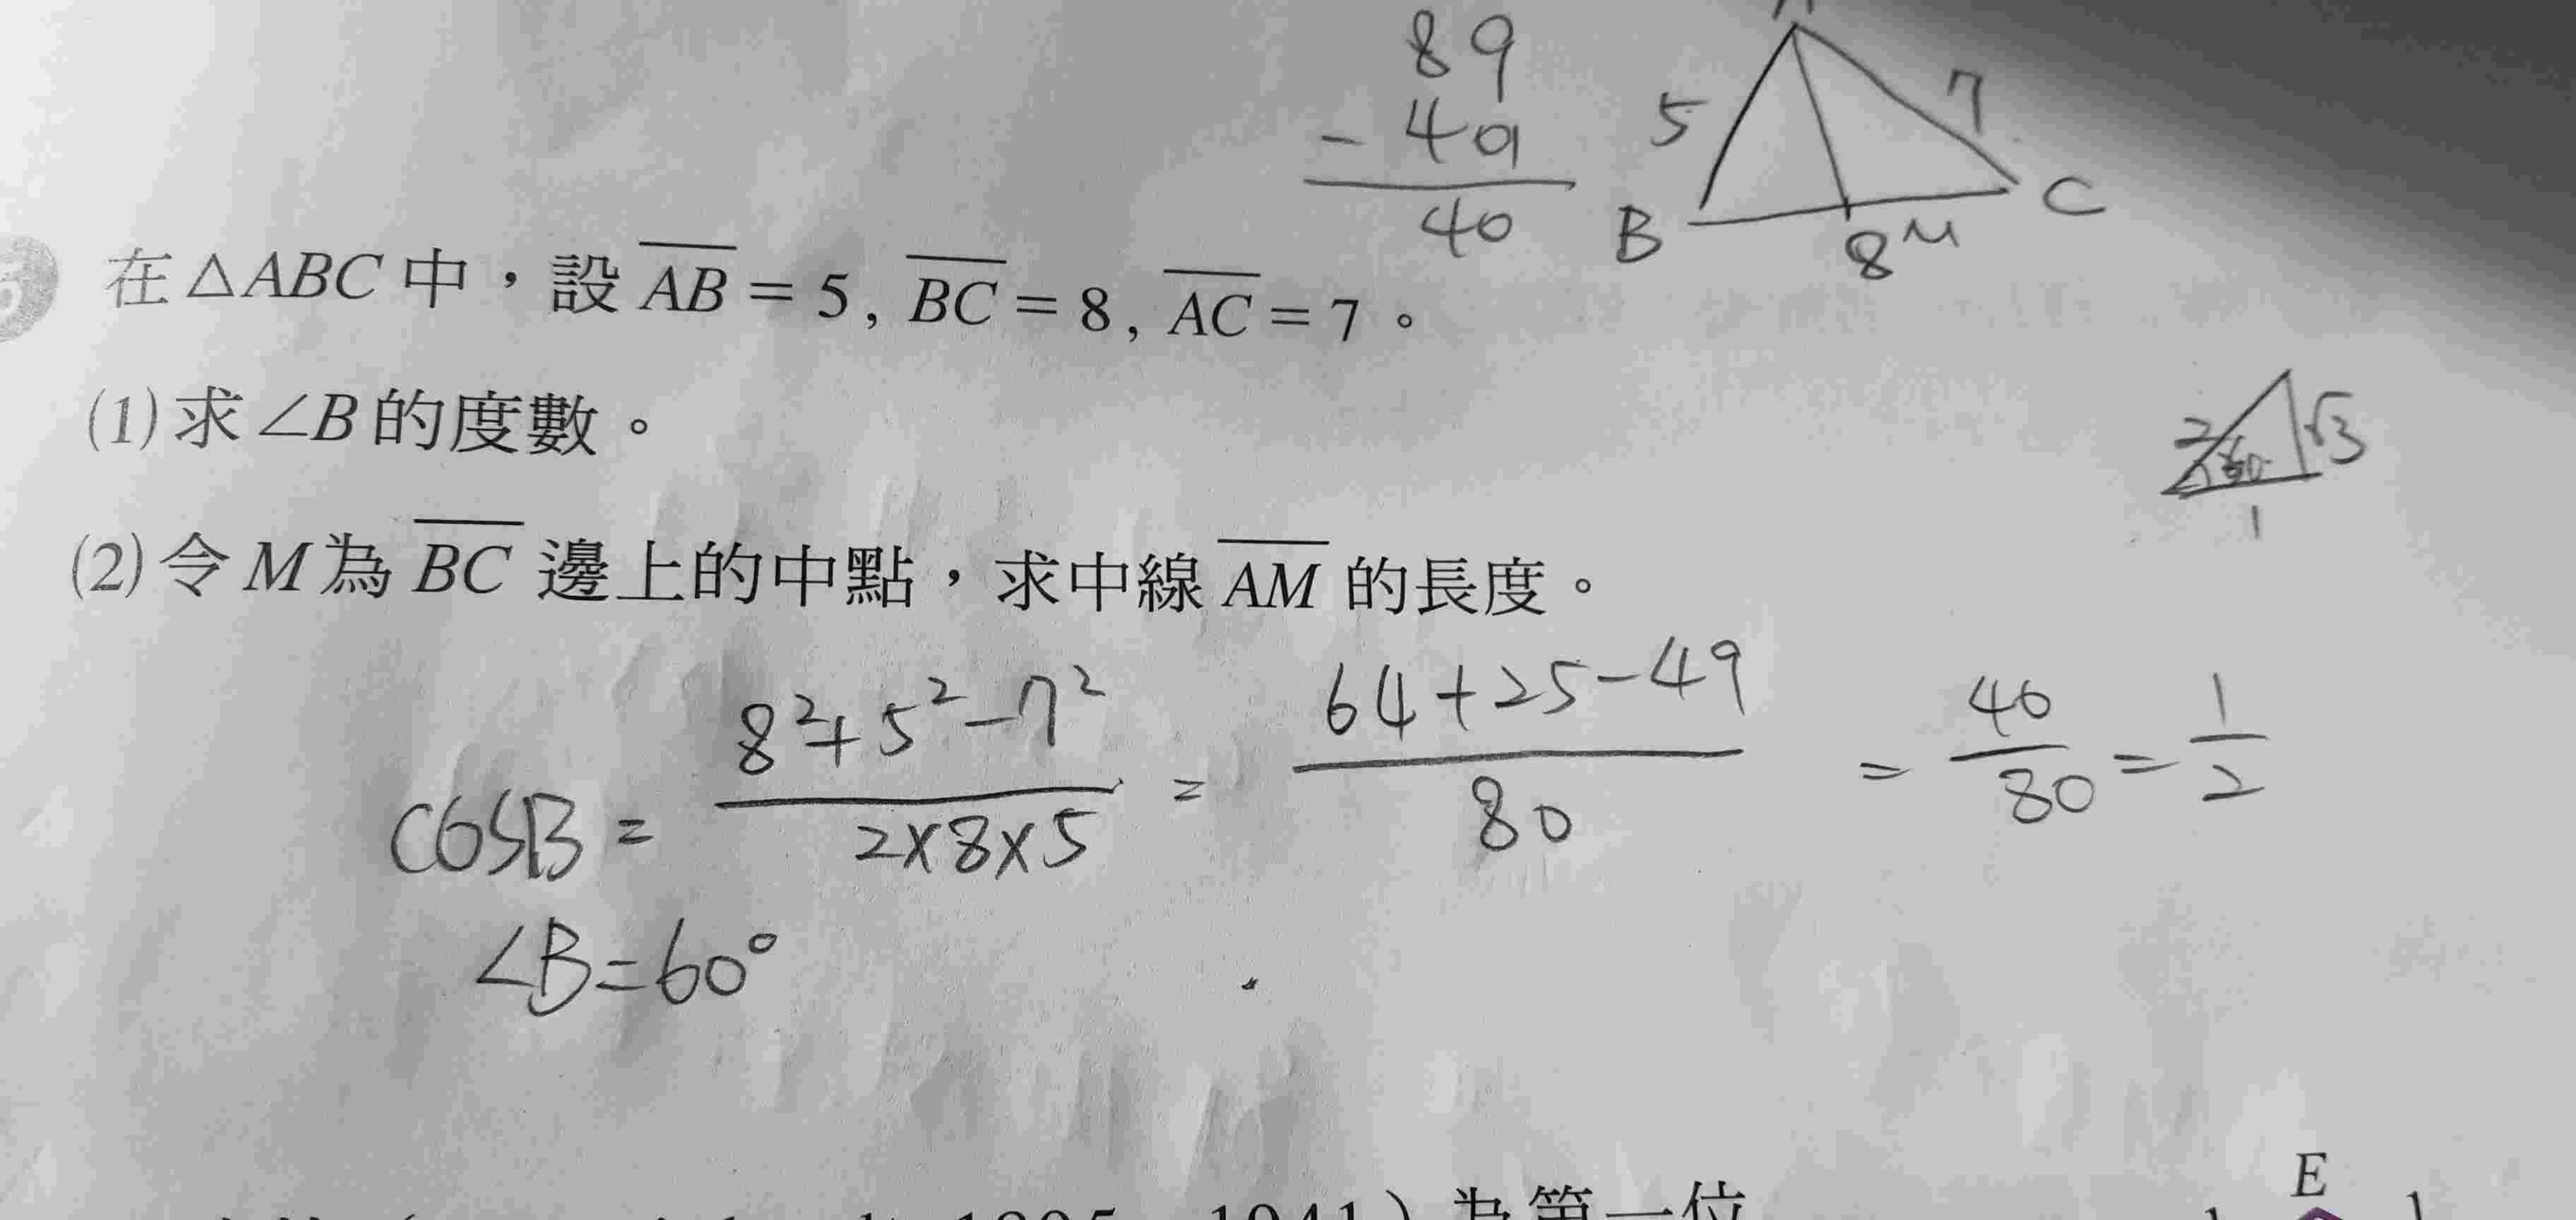 89
- 49
40
A
5
7
B
8
M
C
在△ABC中，設 AB = 5, BC = 8, AC = 7。
(1)求∠B的度數。
2
60
√3
1
(2)令M為 BC 邊上的中點，求中線 AM 的長度。
COSB = 8²+5²-7² / 2×8×5 = 64+25-49 / 80 = 40 / 80 = 1 / 2
∠B=60°
E